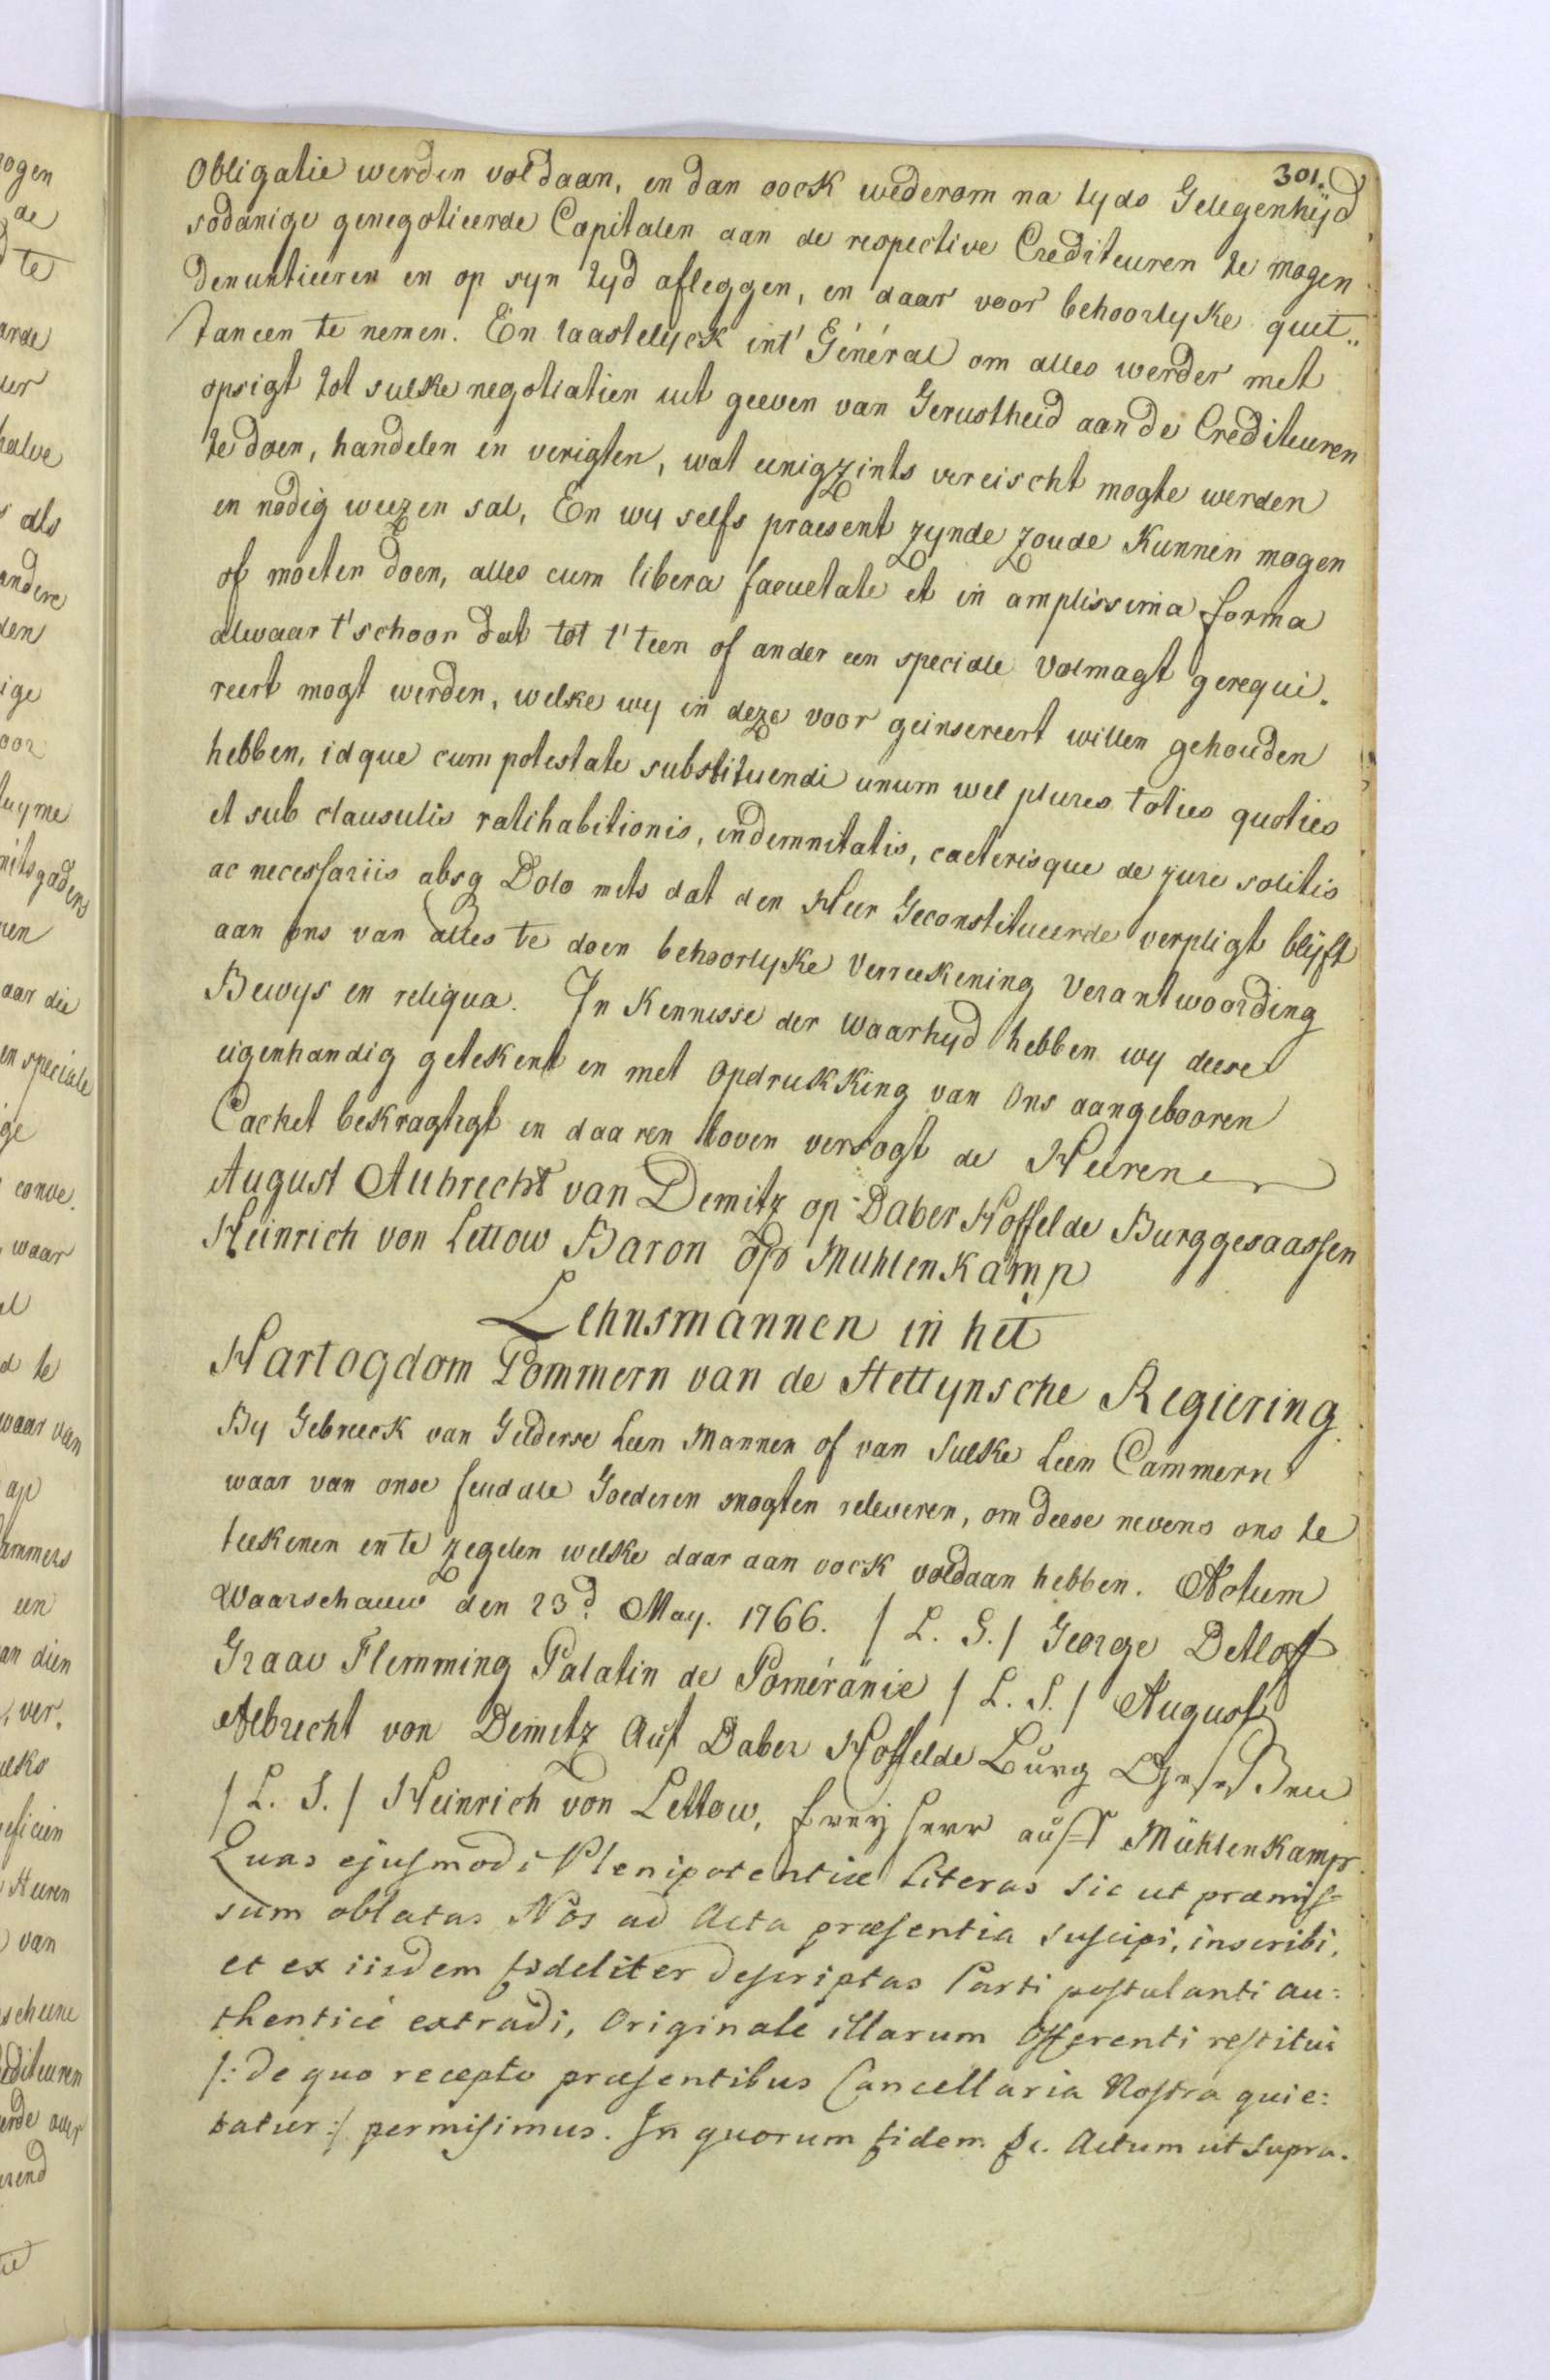 301.
Obligatie werden voldaan, en dan oock wederom na tyds Gelegenhÿd
sodanige genegotieerde Capitalen aan de respective Crediteuren te mogen
Denuntieeren en op syn tyd afleggen, en daar voor behoorlyke quit„
tancen te nemen. En laastelyck int' Général om alles werder met
opsigt tot sulke negotiatien uit geeven van Gerustheid aan de Crediteuren
te doen, handelen en verigten, wat eenigzints vereischt mogte werden
en nodig weezen sal, En wy selfs praesent zynde zoude Kunnen mogen
of moeten doen, alles cum libera facultate et in amplissima forma
alwaar t'schoon dat tot t'teen of ander een speciale volmagt gerequi.
reert mogt werden, welke wy in deze voor geinsereert willen gehouden
hebben, idque cum potestate substituendi unum wel plures toties quoties
et sub clausulis ratihabitionis, indemnitatis, caeterisque de jure solitis
ac necessariis absq Dolo mits dat den Heer Geconstitueerde verpligt blyft
aan ons van alles te doen behoorlyke Verreekening Verantwoording
Bewys en reliqua. In Kennisse der Waarhyd hebben wy deese
eigenhandig getekent en met Opdrukking van Ons aangebooren
Cachet bekragtigt en daaren boven versogt de Heeren
August Albrecht van Demitz op Daber Hoffelde Burggesaassen
Heinrich von Lettow Baron op Muhlenkamp
Lehnsmannen in het
Hartogdom Pommern van de Stettynsche Regiering.
By Gebreeck van Gelderse Leen Mannen of van Sulke Leen Cammern
waar van onse feudale Goederen mogten releveren, om deese nevens ons te
teekenen en te zegelen welke daar aan oock voldaan hebben. Actum
Waarschauw den 23d. May. 1766. / L. S. / George Detloff
Graav Flemming Palatin de Poméranie / L. S. / August
Albrecht von Demitz Auf Daber Hoffelde Burg Gesessen
/ L. S. / Heinrich von Lettow, freyherr auff Mühlenkamp.
Quas ejusmodi Plenipotentiæ Literas sic ut præmis=
sum oblatas Nos ad Acta præsentia suscipi, inscribi,
et ex iisdem fideliter descriptas Parti postulanti au:
thenticè extradi, Originale illarum Offerenti restitui
/: de quo recepto præsentibus Cancellaria Nostra quie:
tatur :/ permisimus. In quorum fidem &c. Actum ut supra.